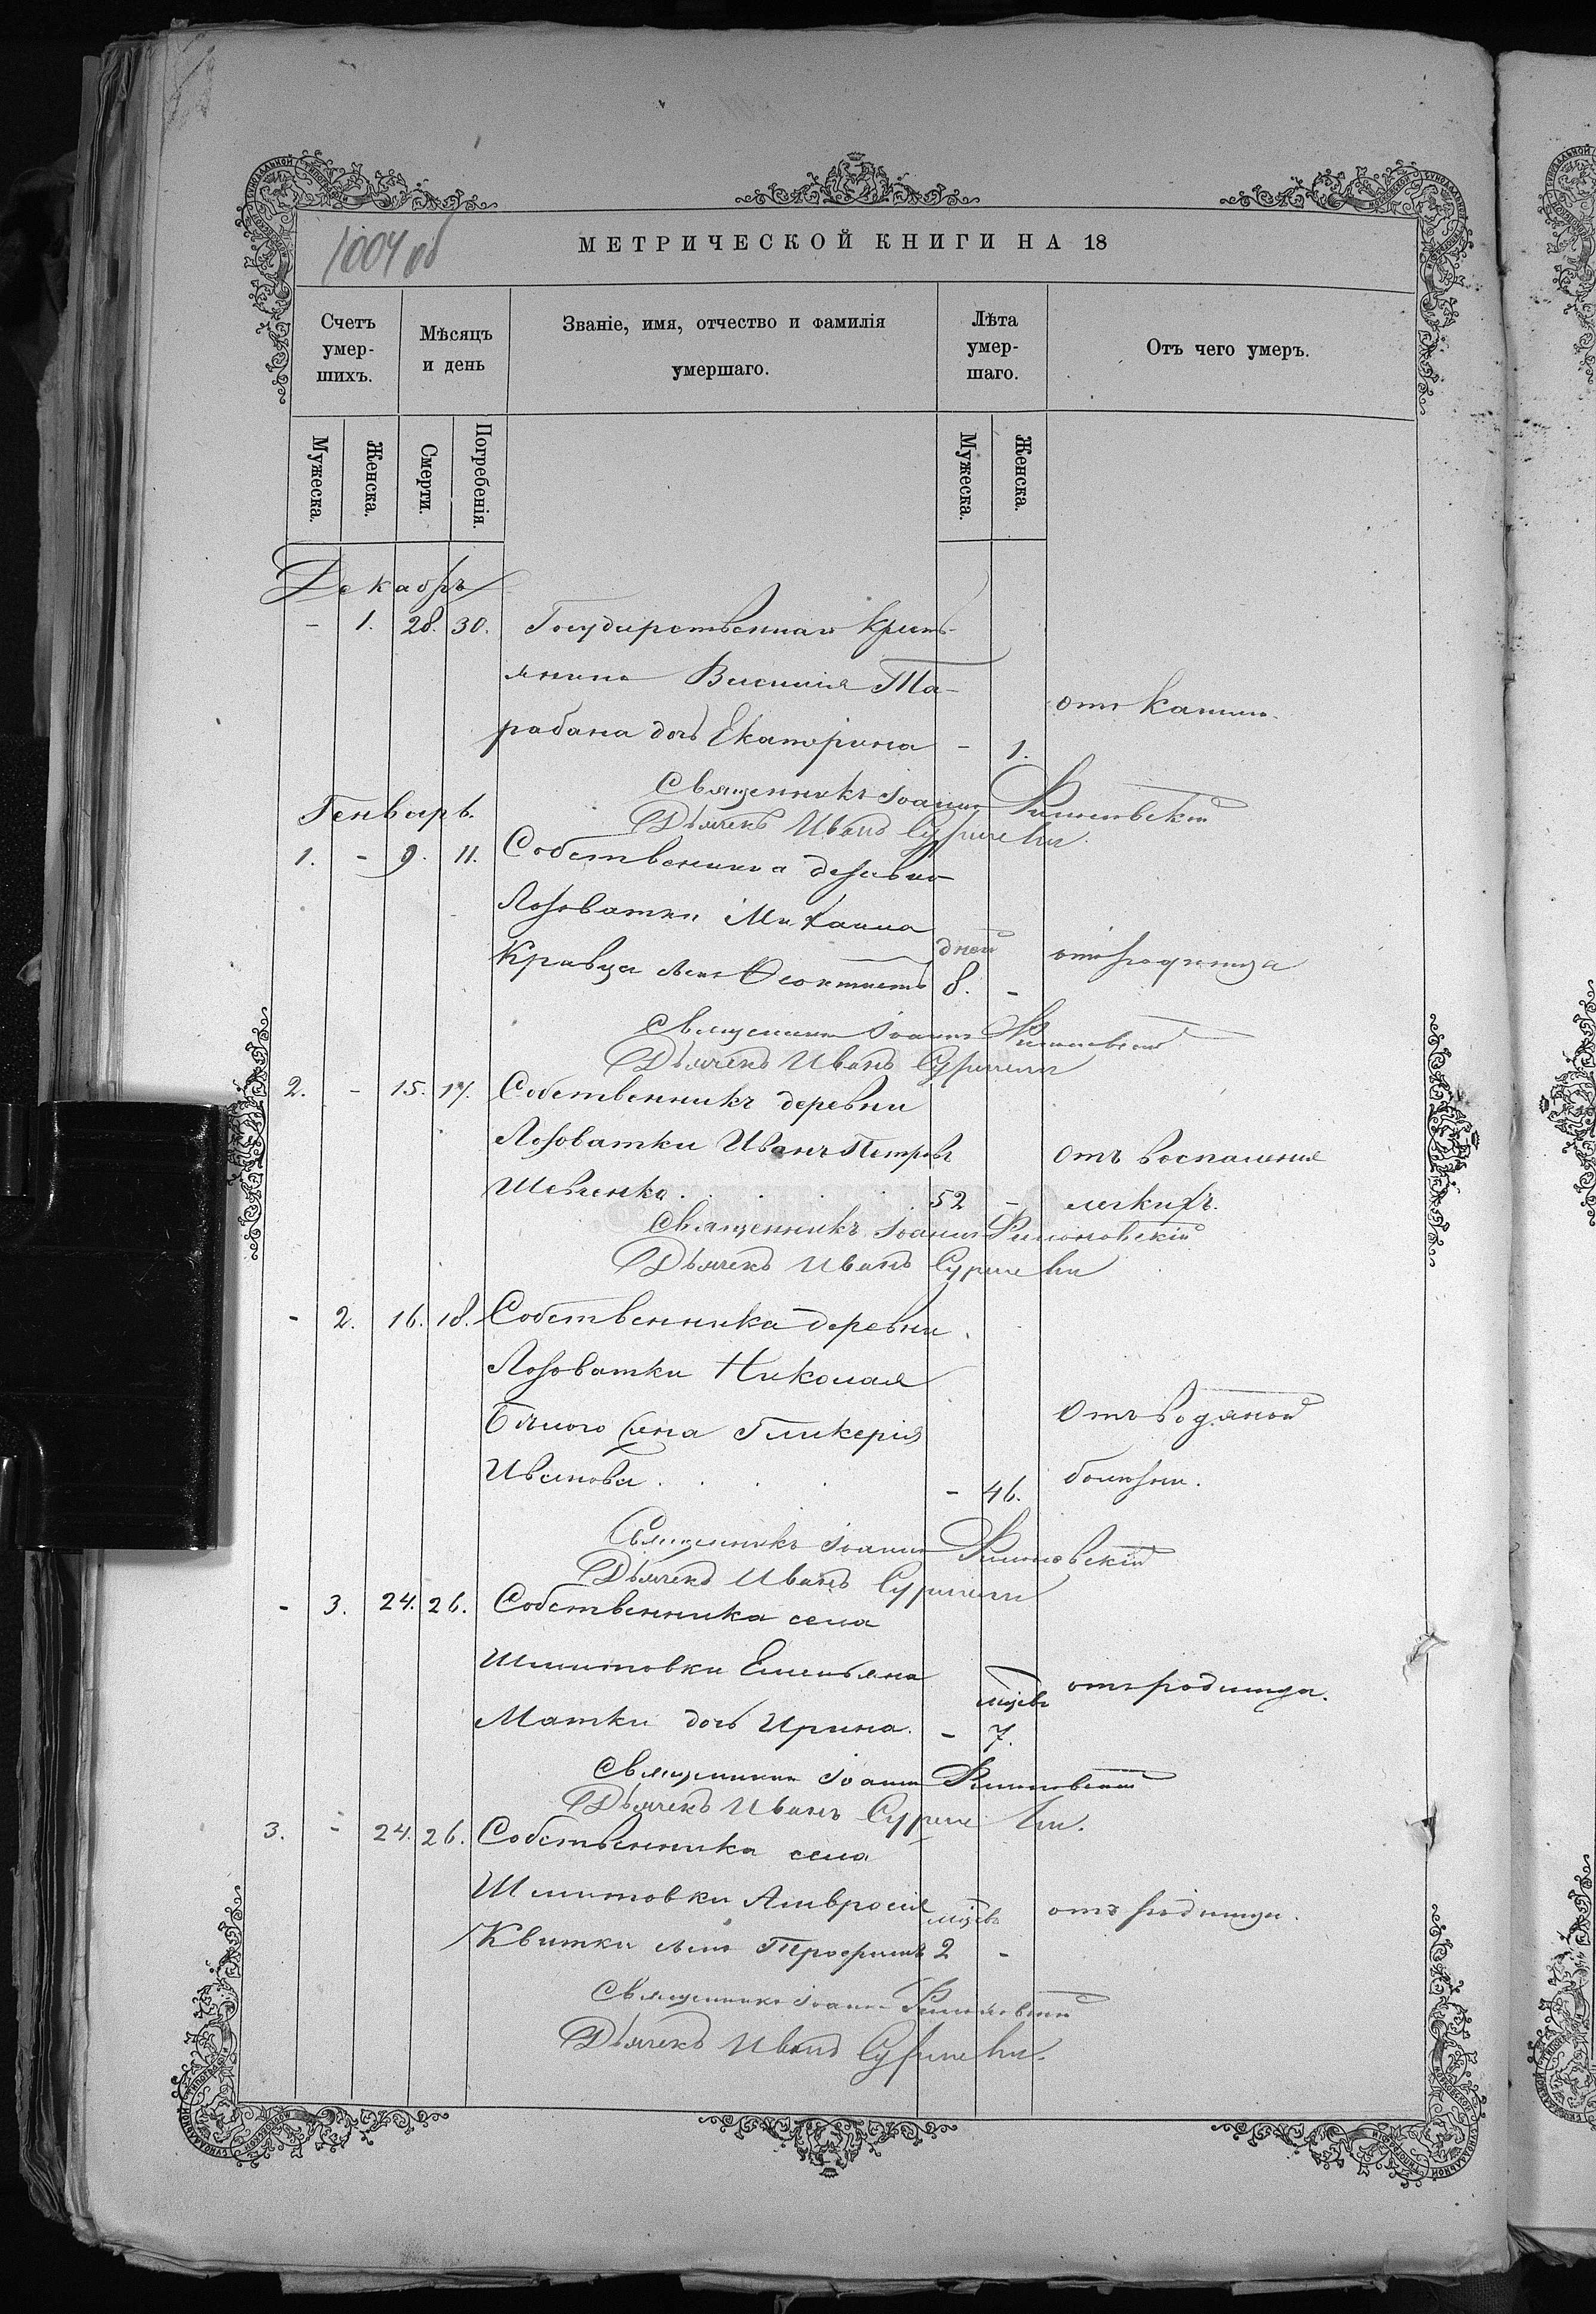 1004 об
МЕТРИЧЕСКОЙ КНИГИ НА 18
Счетъ умер-шихъ.
Мѣсяцъ и день
Званіе, имя, отчество и фамилія умершаго.
Лѣта умер-шаго.
Отъ чего умеръ.
Мужеска.
Женска.
Смерти.
Погребенія.
Мужеска.
Женска.
Декабрь
- 1. 28. 30. Государственнаго крест-
янина Василія Та-
отъ кашля.
рабана дочь Екатерина - 1.
Священникъ Іоаннъ
Генварь.
Дьячекъ Иванъ
1. - 9. 11. Собственника деревни
Лозоватки Михаила
Кравца сынъ Феоктистъ дней 8. - отъ родимца
Священникъ Іоаннъ
Дьячекъ Иванъ
2. - 15. 17. Собственникъ деревни
Лозоватки Иванъ Петровъ отъ воспаленія
Шевченко . . . . . 52 - легкихъ.
Священникъ Іоаннъ
Дьячекъ Иванъ
- 2. 16. 18. Собственника деревни
Лозоватки Николая
Бѣлого жена Гликерія Отъ водяной
Иванова . . . - 46. болѣзни.
Священникъ Іоаннъ
Дьячекъ Иванъ
- 3. 24. 26. Собственника села
Шмитовки Емельяна
Матки дочь Ирина. - мцевъ 7. отъ родимца.
Священникъ Іоаннъ
Дьячекъ Иванъ
3. - 24. 26. Собственника села
Шмитовки Амвросія
Квитки сынъ Трофимъ мцевъ 2 - отъ родимца.
Священникъ Іоаннъ
Дьячекъ Иванъ